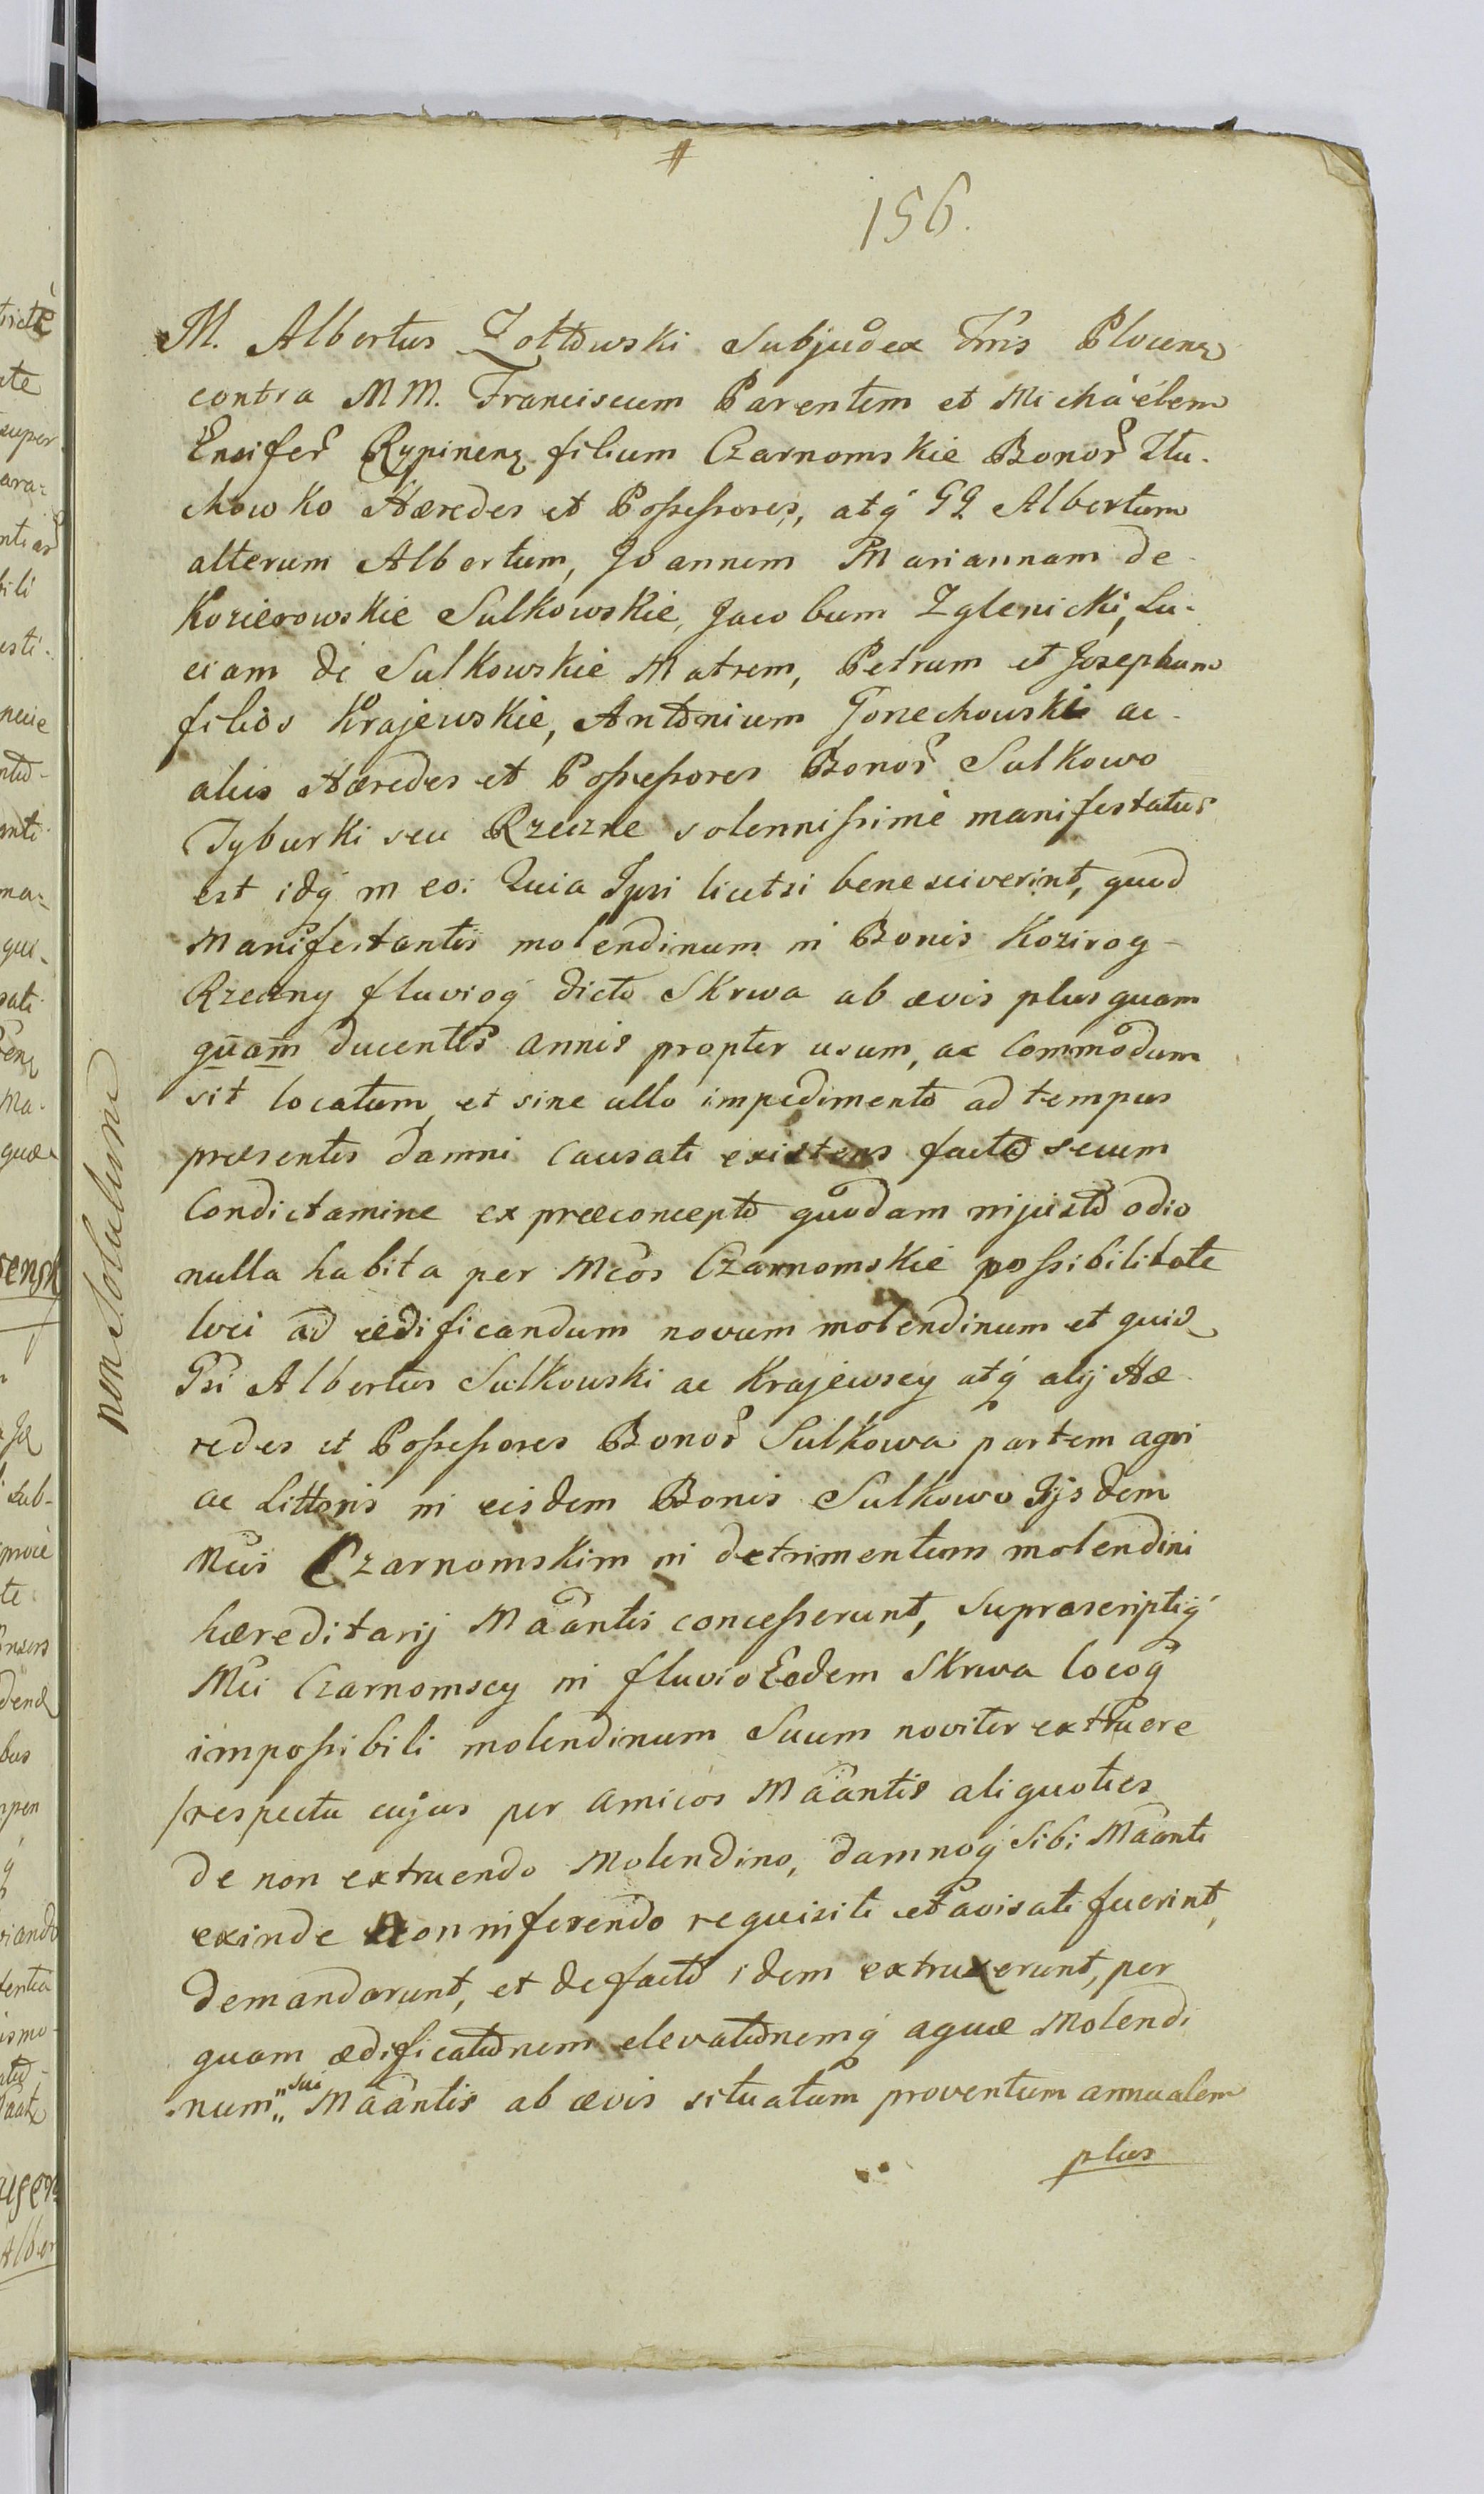 #
156.
M. Albertus Zołtowski Subjudex Trris Plocens
contra MM. Franciscum Parentem et Michàélem
Ensifer Rypinens filium Czarnomskie Bonor Stu-
chowko Hæredes et Possessores, atq GG Albertum
alterum Albertum, Joannem Mariannam de
Kozierowskie Sulkowskie, Jacobum Zglenicki, Lu-
ciam de Sulkowskie Matrem, Petrum et Josephum
filios Krajewskie, Antonium Gorzechowski ac
alios Hæredes et Possessores Bonor Sulkowo
Tyburki seu Rzeczne solennissimè manifestatus
est idq in eo: Quia Ipsi licet si bene sciverint, quod
Manifestantis molendinum in Bonis Kozirog
Rzeczny fluvioq dicto Skrwa ab ævis plus quam
quam ducentis annis propter usum, ac Commodum
sit locatum et sine ullo impedimento ad tempus
præsentis damni causati existens facto secum
Condictamine ex præconcepto quodam injusto odio
nulla habita per Mcos Czarnomskie possibilitate
loci ad ædificandum novum molendinum et quid
Gsi Albertus Sulkowski ac Krajewscy atq alij Hæ-
redes et Possessores Bonor Sulkowa partem agri
ac Littoris in eisdem Bonis Sulkowo Ijsdem
Mcis Czarnomskim in detrimentum molendini
hæreditarij Maantis concesserunt, Suprascriptiq
Mci Czarnomscy in fluvio Eodem Skrwa locoq
impossibili molendinum Suum noviter extruere
/respectu cujus per amicos Maantis aliquoties
de non extruendo Molendino, damnoq Sibi Maanti
exinde non inferendo requisiti et avisati fuerint,
demandarunt, et de facto idem extruxerunt, per
quam ædificationem elevationemq aquæ Molendi
num „sui„ Maantis ab ævis situatum proventum annualem
plus
non Solalum